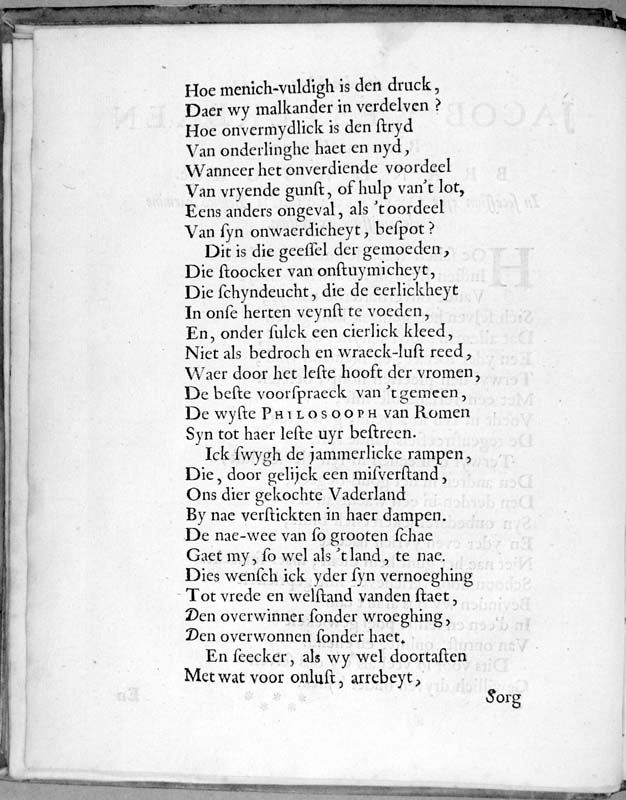 Hoe menich-vuldigh is den druck,
Daer wy malkander in verdelven?
Hoe onvermydlick is den ſtryd
Van onderlinghe haet en nyd,
Wanneer het onverdiende voordeel
Van vryende gunſt, of hulp van't lot,
Eens anders ongeval, als 't oordeel
Van ſyn onwaerdicheyt, beſpot?
Dit is die geeſſel der gemoeden,
Die ſtoocker van onſtuymicheyt,
Die ſchyndeucht, die de eerlickheyt
In onſe herten veynſt te voeden,
En, onder ſulck een cierlick kleed,
Niet als bedroch en wraeck-luſt reed,
Waer door het leſte hooft der vromen,
De beſte voorſpraeck van 't gemeen,
De wyſte PHILOSOOPH van Romen
Syn tot haer leſte uyr beſtreen.
Ick ſwygh de jammerlicke rampen,
Die, door gelijck een miſverſtand,
Ons dier gekochte Vaderland
By nae verſtickten in haer dampen.
De nae-wee van ſo grooten ſchae
Gaet my, ſo wel als 't land, te nae.
Dies wenſch ick yder ſyn vernoeghing
Tot vrede en welſtand vanden ſtaet,
Den overwinner ſonder wroeghing,
Den overwonnen ſonder haet.
En ſeecker, als wy wel doortaſten
Met wat voor onluſt, arrebeyt,
Sorg